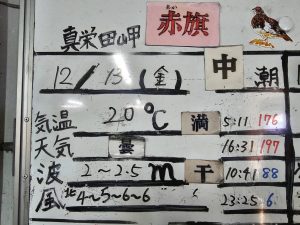 真栄田岬 赤旗
12/13(金) 中潮
気温 20℃ 満 5:11 176
天気 曇 16:31 197
波 2~2.5m 干 10:41 88
風 北4~5~6~6 23:25 6